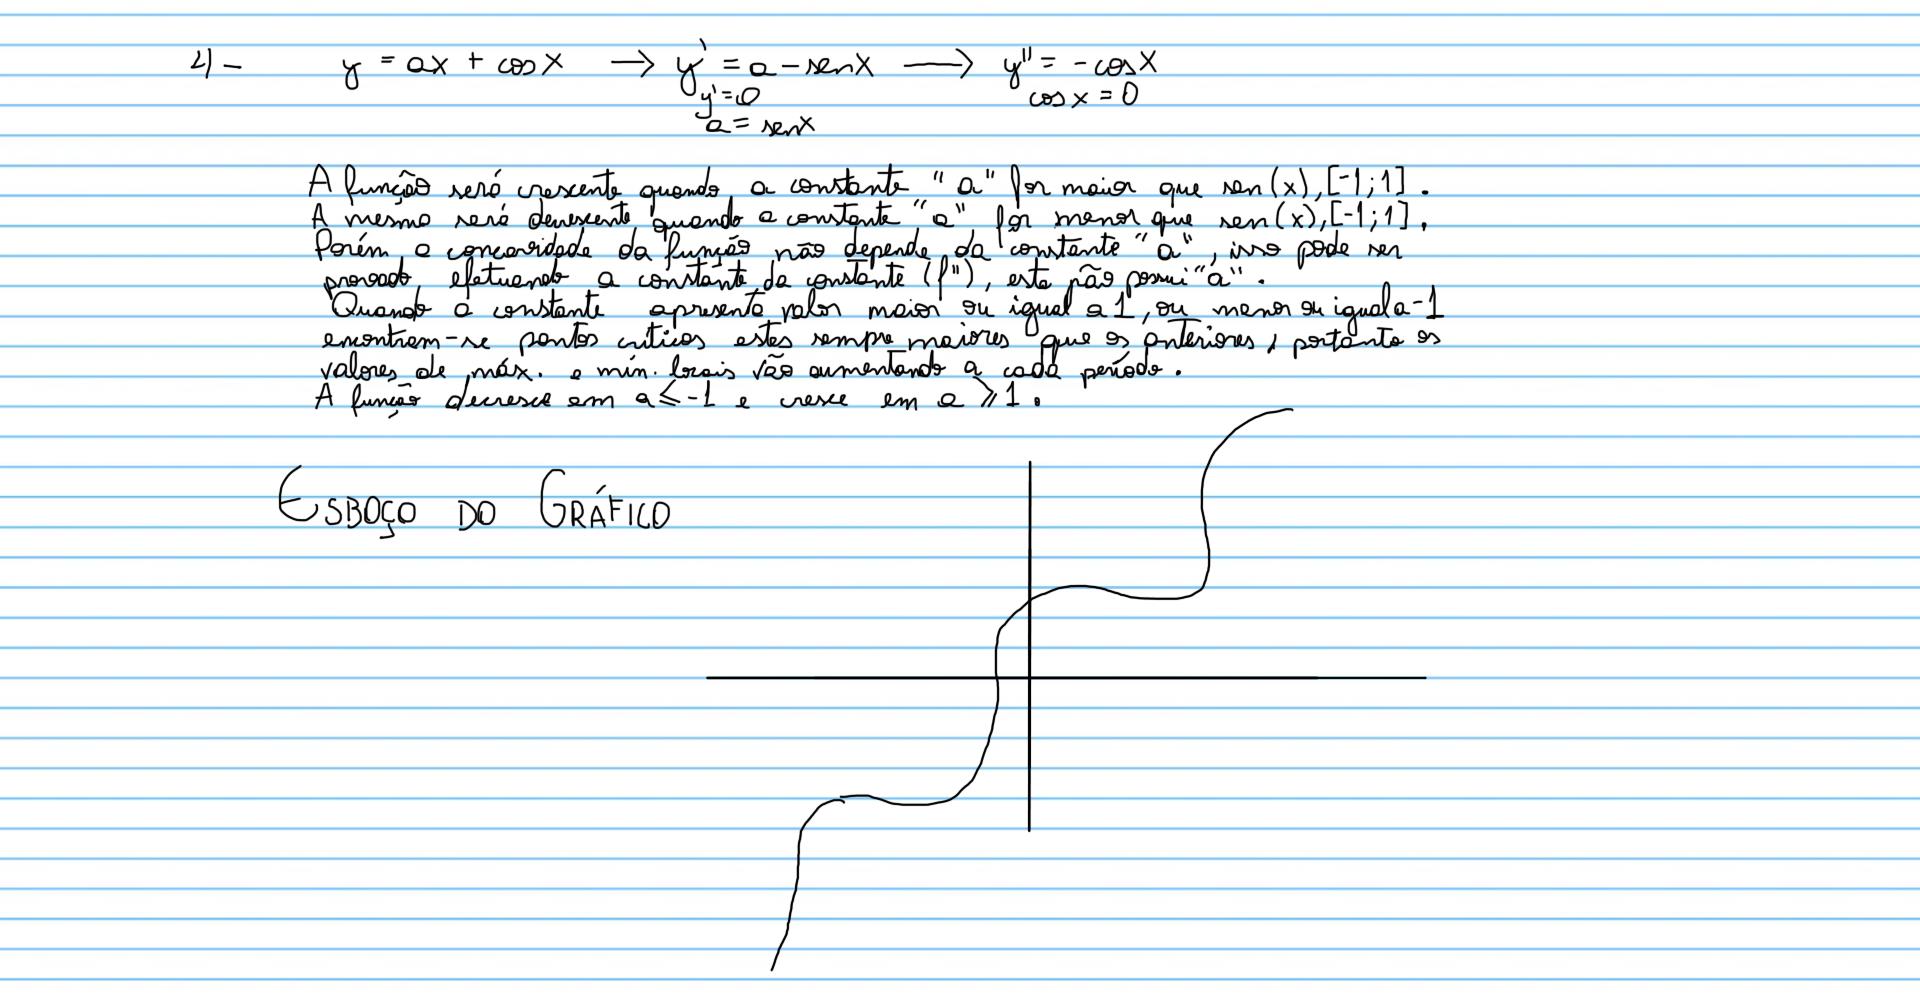 4) - y = ax + cosx → y' = a - senx → y'' = - cosx
y' = 0 cos x = 0
a = senx
A função será crescente quando a constante "a" for maior que sen(x), [-1;1].
A mesma será decrescente quando a constante "a" for menor que sen(x), [-1;1].
Porém a concavidade da função não depende da constante "a", isso pode ser
provado efetuando a constante da constante (f''), esta não possui "a".
Quando a constante apresenta valor maior ou igual a 1, ou menor ou igual a -1
encontram-se pontos críticos estes sempre maiores que os anteriores, portanto os
valores de máx. e mín. locais vão aumentando a cada período.
A função decresce em a ⩽ -1 e cresce em a ⩾ 1.
ESBOÇO DO GRÁFICO